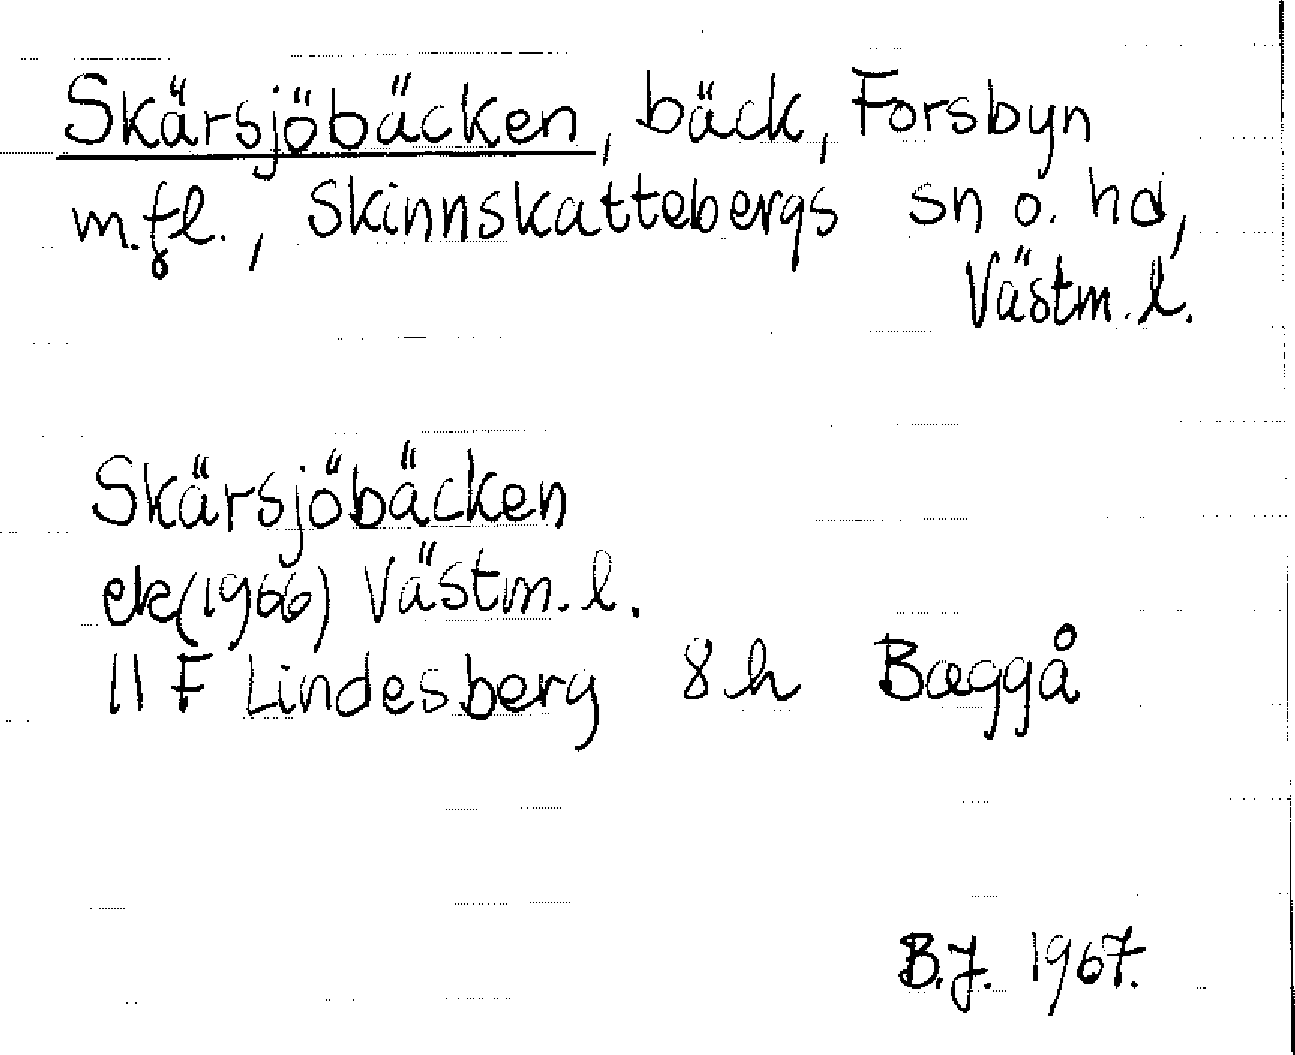 Skärsjöbäcken, bäck, Forsbyn
m.fl., Skinnskattebergs sn o. hd,
Västm. l.
Skärsjöbäcken
ek(1966) Västm. l.
11 F Lindesberg 8 h Bæggå
B.J. 1967.